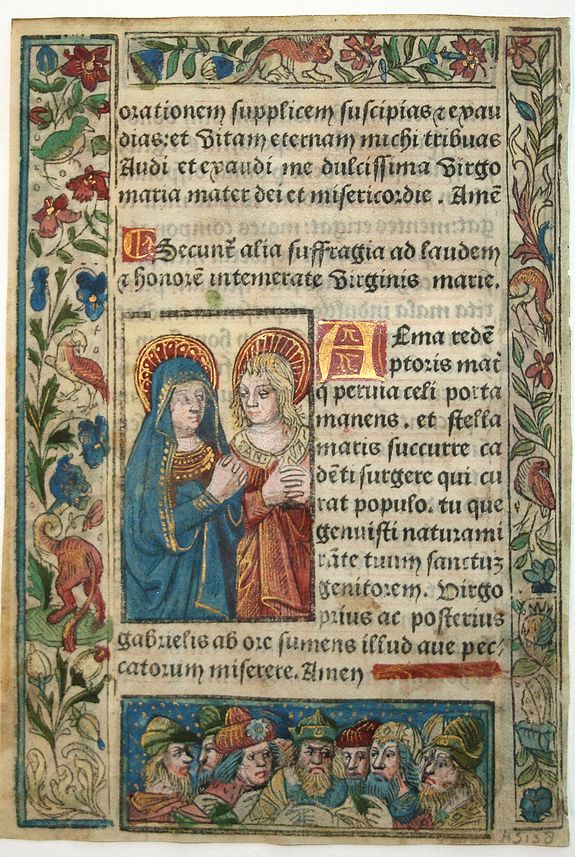 orationem supplicem suscipias ⁊ exau
dias: et Vitam eternam michi tribuas
Audi et exaudi me dulcissima Virgo
maria mater dei et misericordie. Amē
Secunt̄ alia suffragia ad laudem
⁊ honorē intemerate Virginis marie.
ALma redē
ptoris mat̄
q̄ peruia celi porta
manens. et stella
maris succurre ca
dēti surgere qui cu
rat populo. tu que
genuisti natura mi
rāte tuum sanctuz
genitorem. Virgo
prius ac posterius
gabrielis ab ore sumens illud aue pec⸗
catorum miserere. Amen